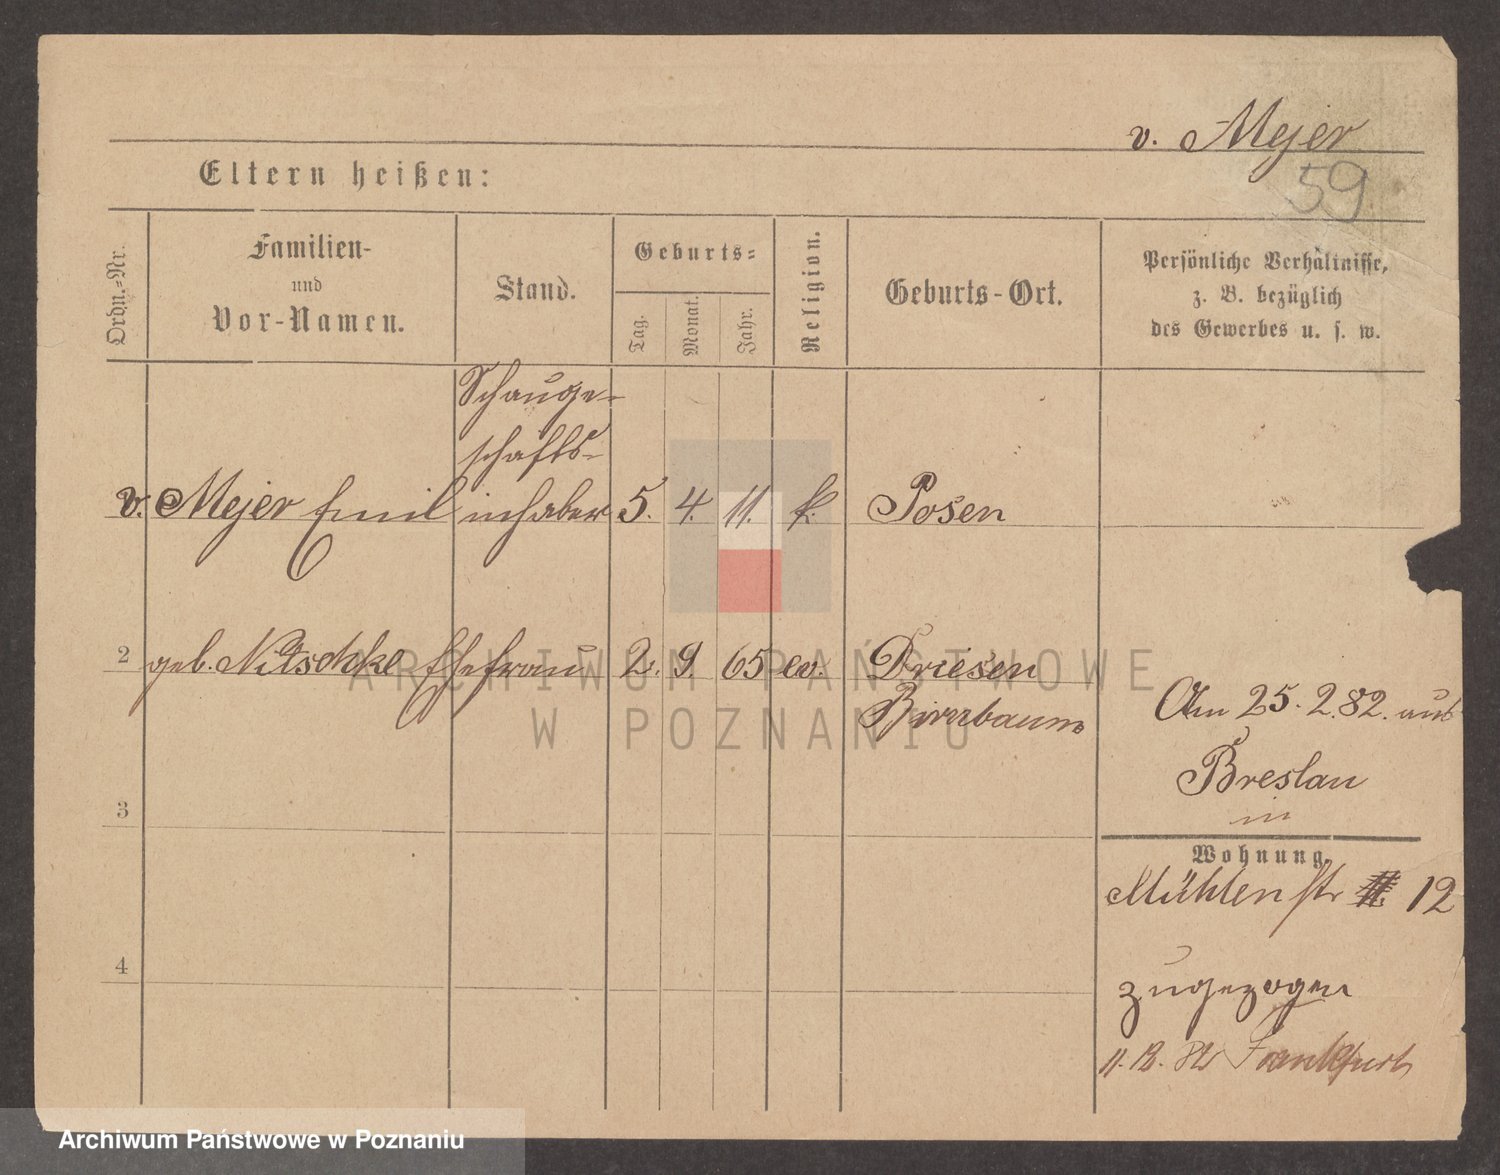 v. Mejer
59
Eltern heißen:
Ordn.-Nr.
Familien-
und
Vor-Namen.
Stand.
Geburts-
Tag.
Monat.
Jahr.
Religion.
Geburts-Ort.
Persönliche Verhältnisse,
z. B. bezüglich
des Gewerbes u. s. w.
Schauge-
schäfts-
v. Mejer Emil inhaber 5. 4. 11. k. Posen
2 geb. Nitschke Ehefrau 2. 9. 65 ev. Driesen
Birnbaum
Am 25. 2. 82. aus
Breslau
in
3
Wohnung.
Mühlenstr 12
4
zugezogen
11. 12. Frankfurt
ARCHIWUM PAŃSTWOWE
W POZNANIU
Archiwum Państwowe w Poznaniu